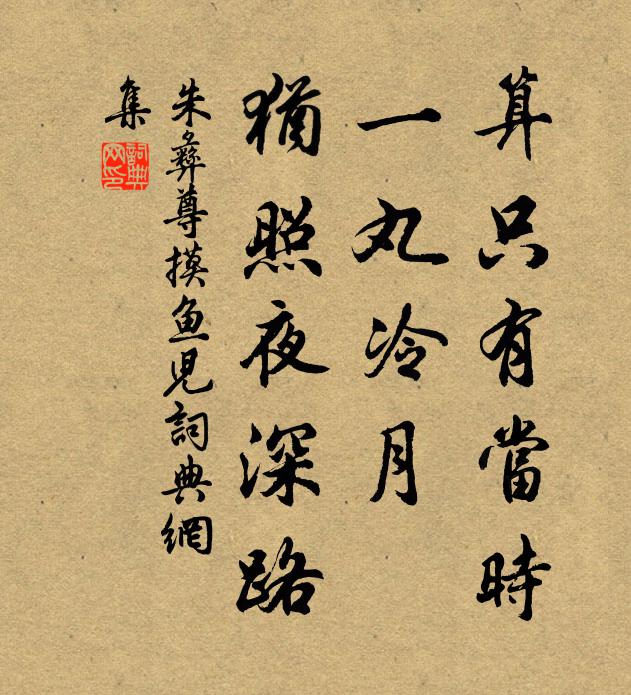 算只有當時
一丸冷月
猶照夜深路
朱彝尊摸魚児詞典網
集
詞典網印